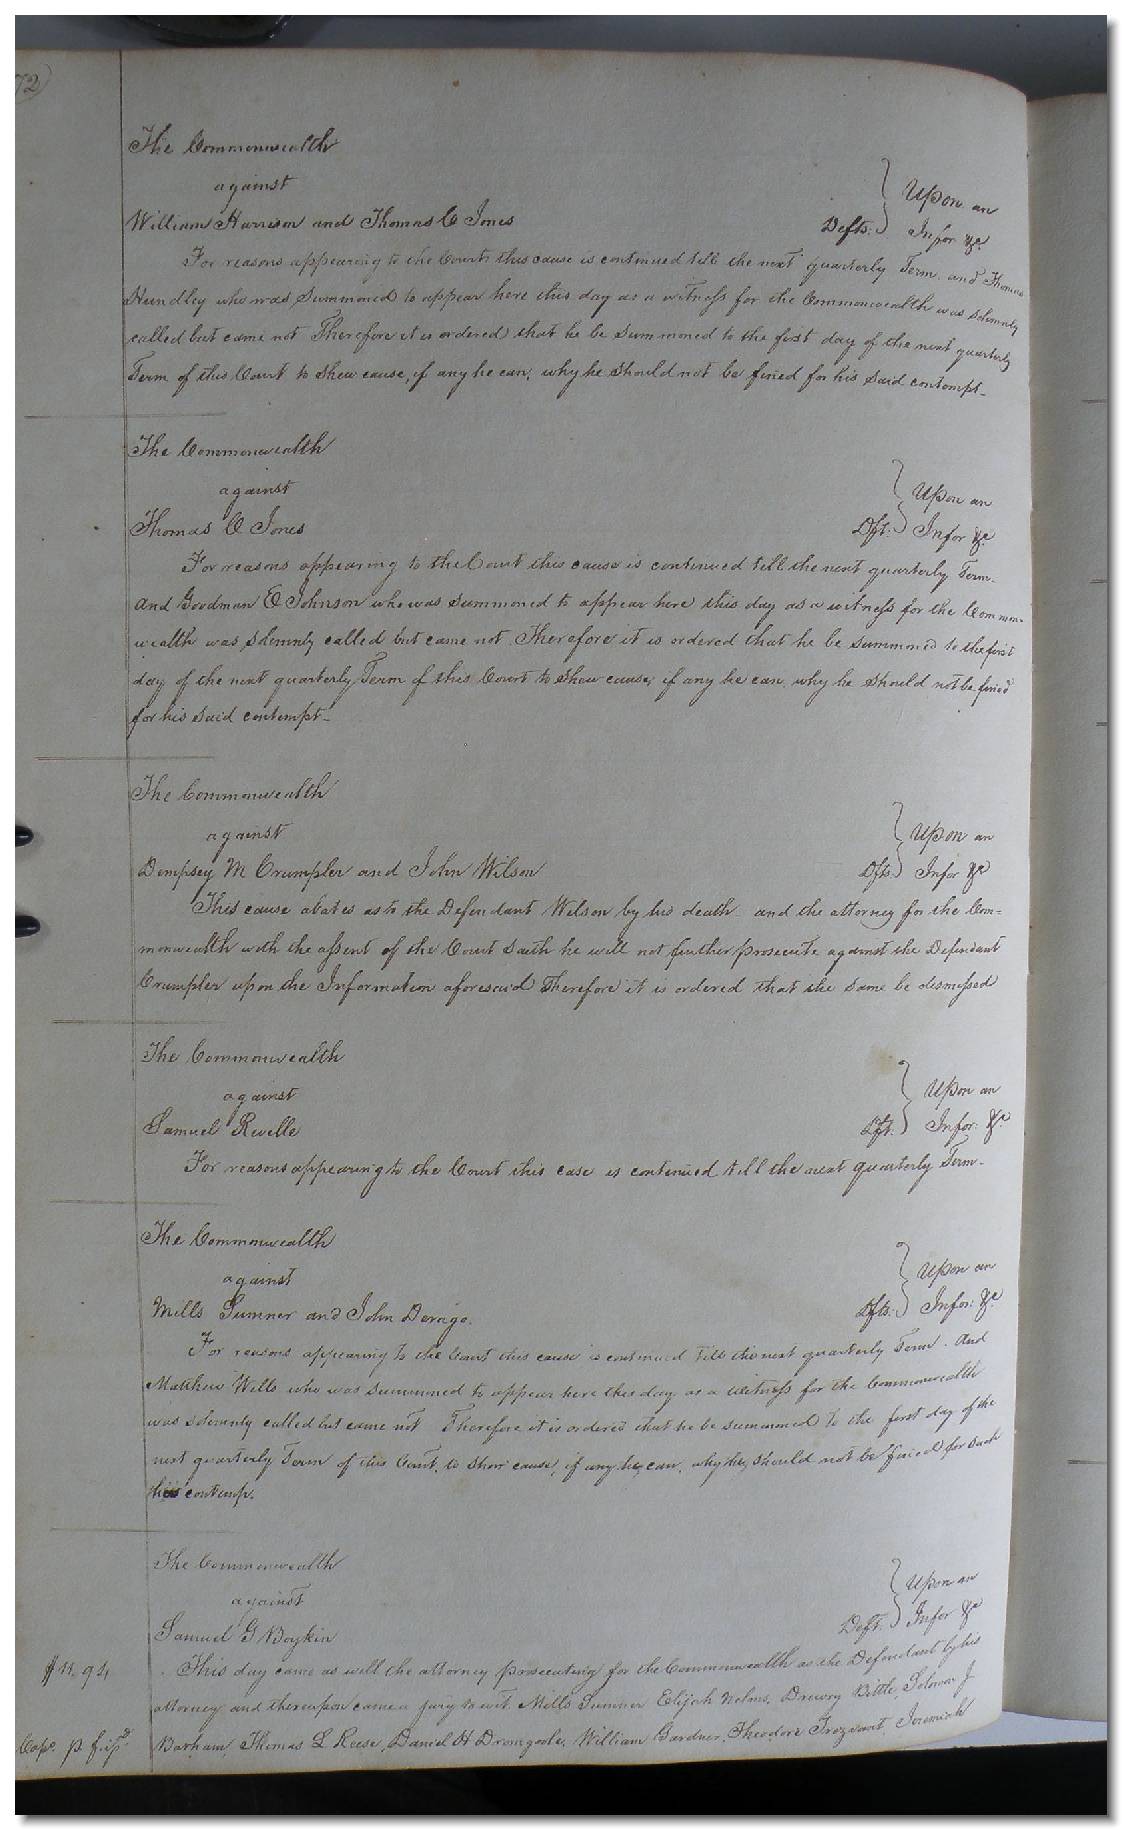 72)
The Commonwealth
against
William Harrison and Thomas C Jones Defts: Upon an
Infor &c.
For reasons appearing to the Court this cause is continued till the next quarterly Term. and Thomas
Hundley who was Summoned to appear here this day as a witness for the Commonwealth was solemnly
called but came not Therefore it is ordered that he be Summoned to the first day of the next quarterly
Term of this Court to Shew cause, if any he can, why he should not be fined for his said contempt_
The Commonwealth
against
Thomas C Jones Dft: Upon an
Infor &c.
For reasons appearing to the Court this cause is continued till the next quarterly Term.
And Goodman E Johnson who was summoned to appear here this day as a witness for the Common-
wealth was solemnly called but came not. Therefore it is ordered that he be summoned to the first
day of the next quarterly Term of this Court to Shew cause, if any he can, why he should not be fined
for his said contempt_
The Commonwealth
against
Dempsey M Crumpler and John Wilson Dfts Upon an
Infor &c
This cause abates as to the Defendant Wilson by his death and the attorney for the Com=
monwealth with the assent of the Court saith he will not further prosecute against the Defendant
Crumpler upon the Information aforesaid Therefore it is ordered that the same be dismissed
The Commonwealth
against
Samuel Rivelle Dft: Upon an
Infor: &c.
For reasons appearing to the Court this case is continued till the next quarterly Term.
The Commonwealth
against
Mills Sumner and John Derrigo. Dfts: Upon an
Infor: &c
For reasons appearing to the Court this cause is continued till the next quarterly Term. And
Matthew Wills who was summoned to appear here this day as a witness for the Commonwealth
was solemnly called but came not Therefore it is ordered that he be summoned to the first day of the
next quarterly Term of this Court, to show cause, if any he can, why he should not be fined for such
his contemp.
The Commonwealth
against
Samuel G Boykin Deft. Upon an
Infor &c
$11.94
This day came as well the attorney prosecuting for the Commonwealth as the Defendant by his
attorney and thereupon came a jury to wit. Mills Sumner Elijah Nelms, Drewry Bittle, Solomon J
Barham, Thomas L Reese, Daniel H Dromgoole, William Gardner, Theodore Trezvant, Jeremiah